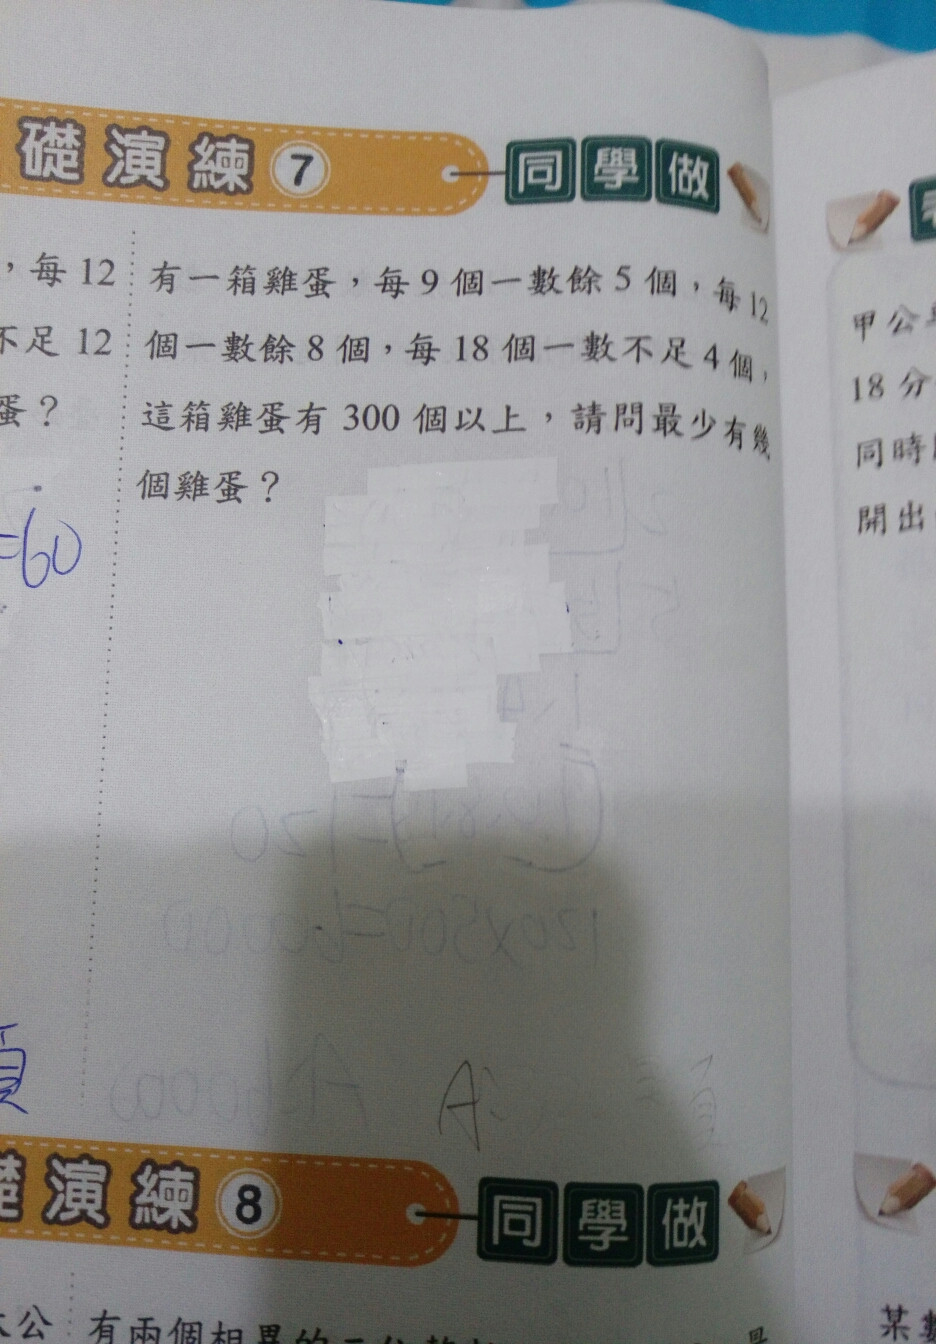 礎演練 7 同學做
，每 12
不足 12
蛋？
=60
有一箱雞蛋，每 9 個一數餘 5 個，每 12
個一數餘 8 個，每 18 個一數不足 4 個，
這箱雞蛋有 300 個以上，請問最少有幾
個雞蛋？
A:
甲公
18 分
同時
開出
礎演練 8 同學做
公
有兩個相異的
某